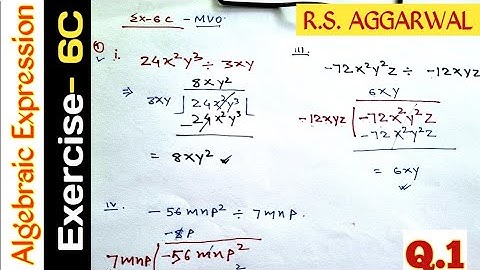 Algebraic Expression
Exercise- 6C
R.S. AGGARWAL
Ex-6C - MVO
① i. 24x²y³ ÷ 3xy
8xy²
⇒ 3xy | 24x²y³
-24x²y³
= 8xy²
iii. -72x²y²z ÷ -12xyz
6xy
-12xyz | -72x²y²z
-72x²y²z
= 6xy
iv. -56mnp² ÷ 7mnp
-8p
7mnp | -56mnp²
Q.1